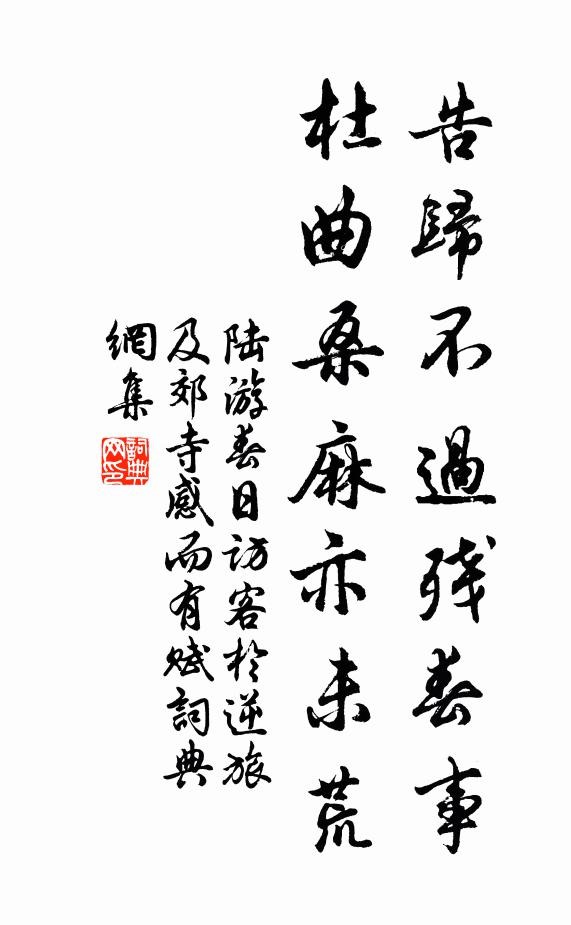 告歸不過殘春事
杜曲桑麻亦未荒
陆游春日訪客於逆旅
及郊寺感而有赋詞典
網集
詞典
网印